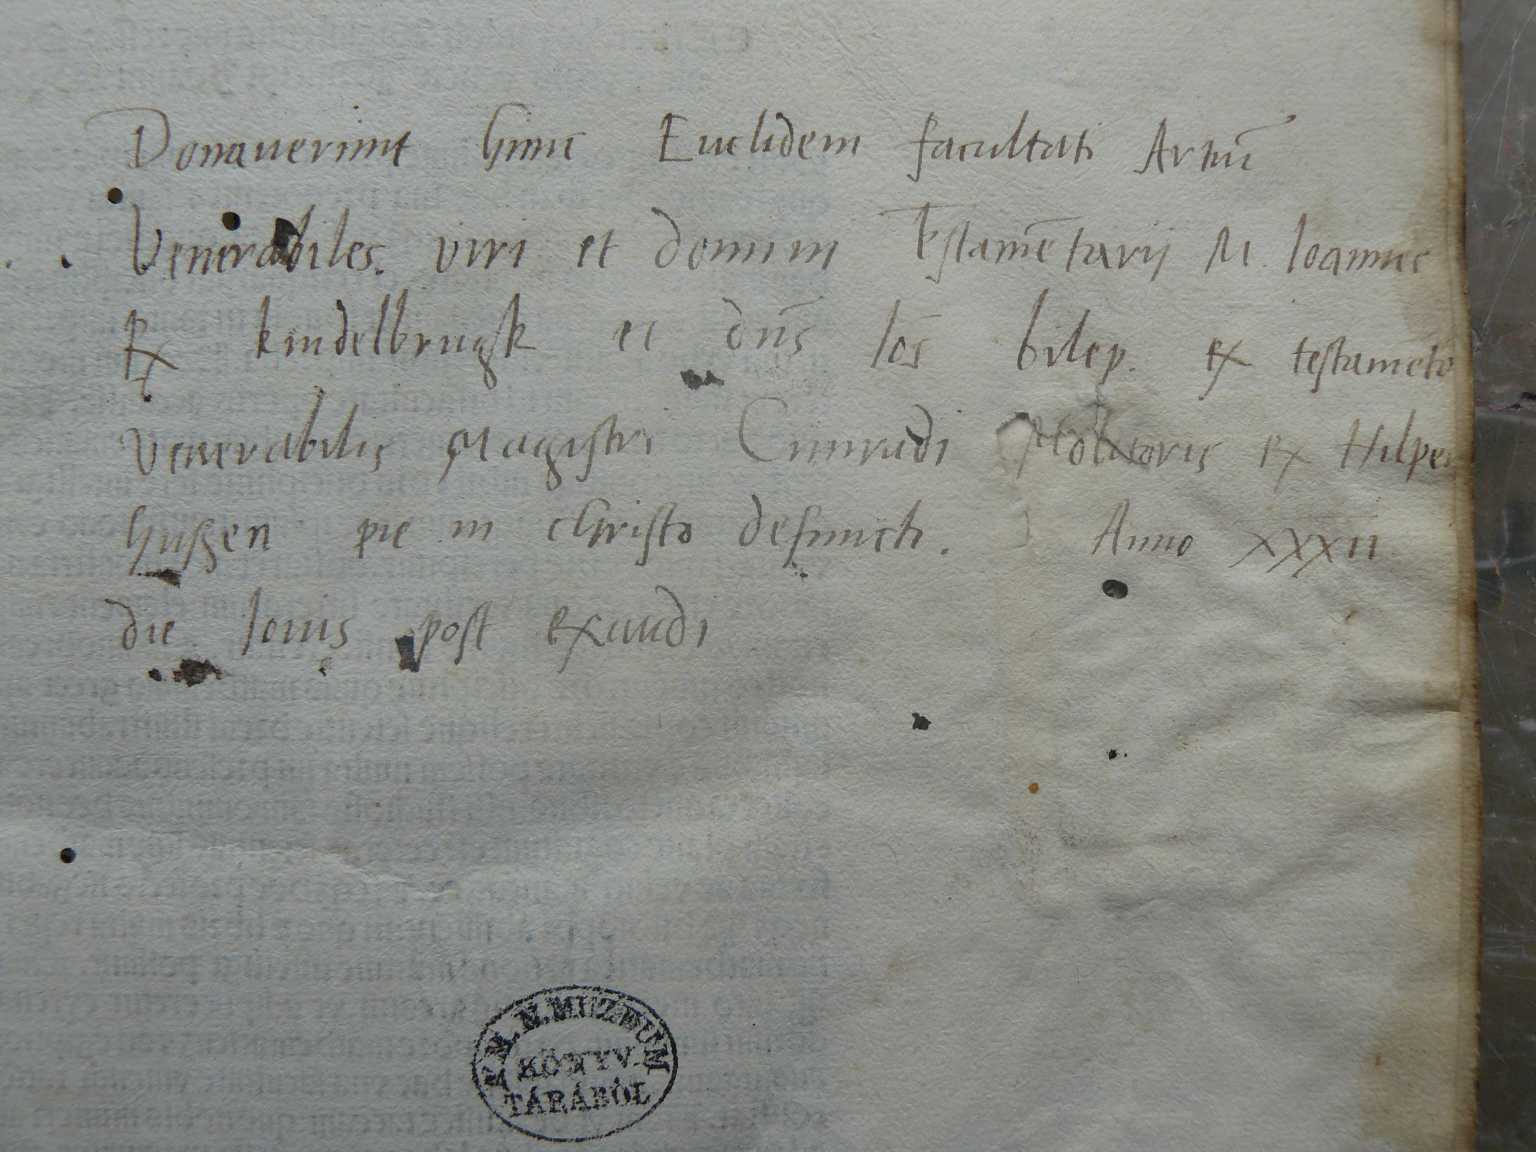 Donaverunt hunc Euclidem facultati Artiũ
Venerabiles viri et domini Testamẽtarii M. Ioannes
Ex kindelbrugk et dñs Ioẽs bilep. ex testamẽto
venerabilis Magistri Cunradi Molitoris ex Hilper
hußen pie in christo defuncti. Anno XXXII
die Iovis post exaudi
M. N. MUZEUM
KÖNYV
TÁRÁBÓL